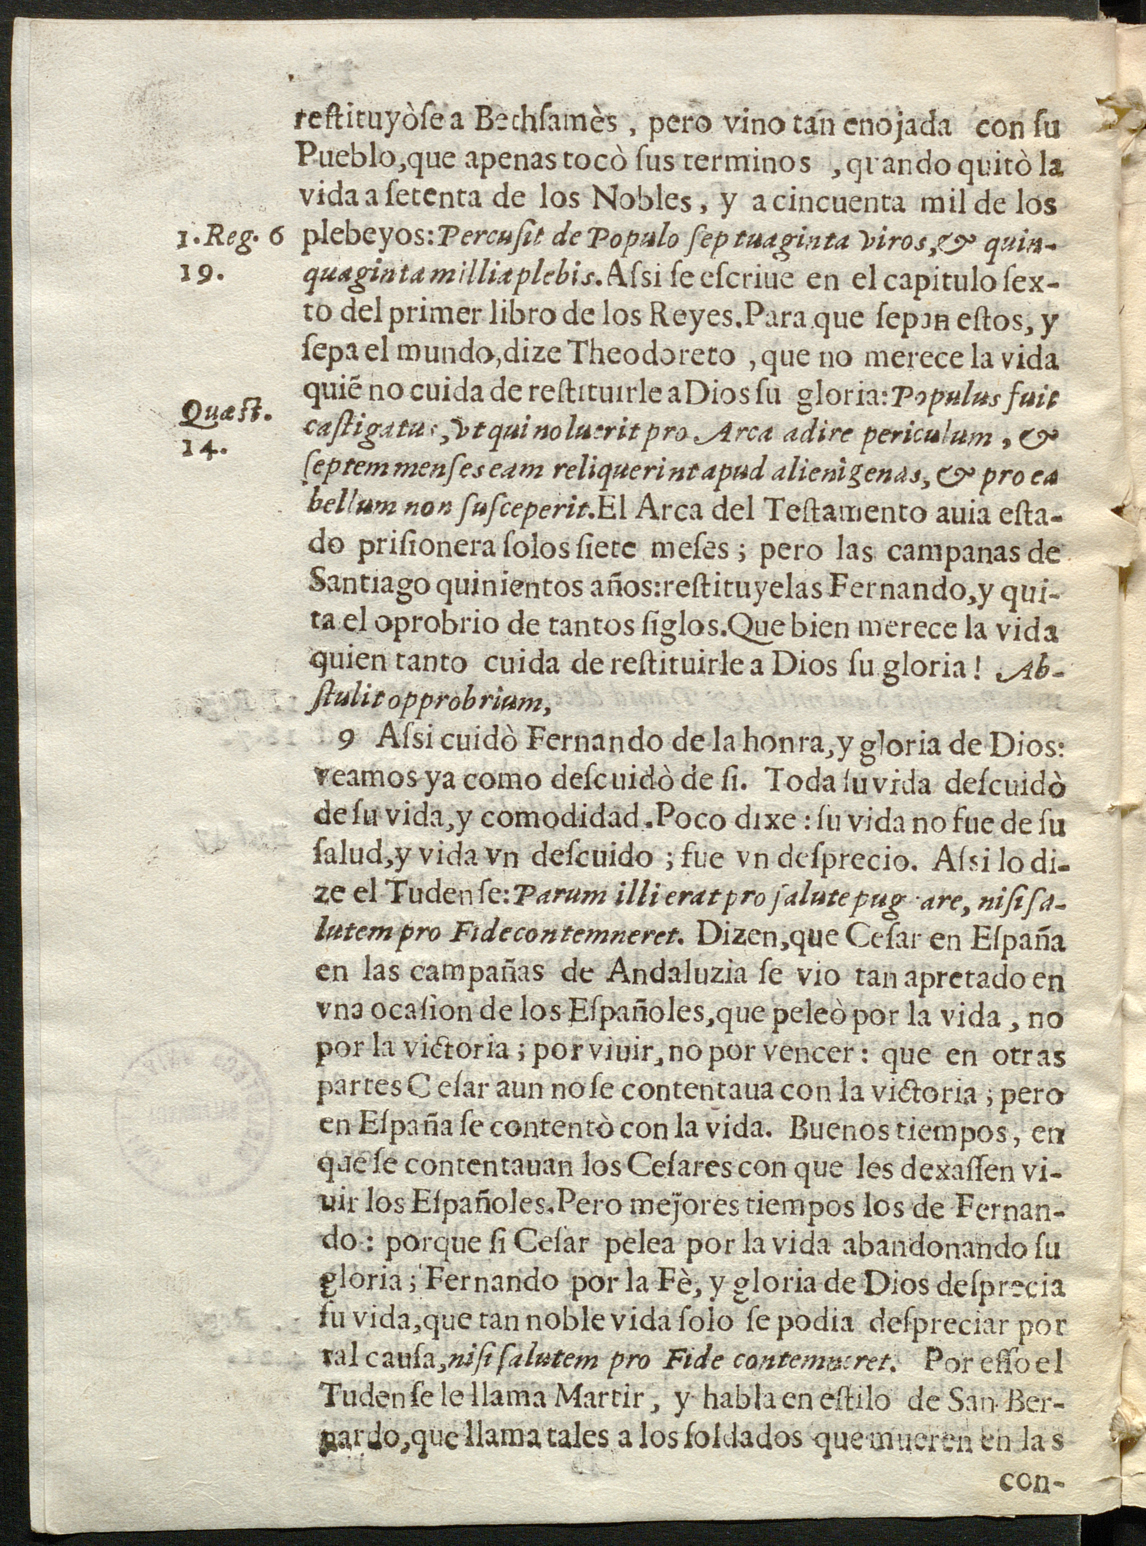 restituyòse a Bethsamès, pero vino tan enojada con su
Pueblo, que apenas tocò sus terminos, quando quitò la
vida a setenta de los Nobles, y a cincuenta mil de los
1. Reg. 6 plebeyos: Percusit de Populo septuaginta viros, & quin-
19. quaginta millia plebis. Assi se escriue en el capitulo sex-
to del primer libro de los Reyes. Para que sepan estos, y
sepa el mundo, dize Theodoreto, que no merece la vida
quiē no cuida de restituirle a Dios su gloria: Populus fuit
Quæst. castigatus, vt qui noluerit pro Arca adire periculum, &
14. septem menses eam reliquerint apud alienigenas, & pro ea
bellum non susceperit. El Arca del Testamento auia esta-
do prisionera solos siete meses; pero las campanas de
Santiago quinientos años: restituyelas Fernando, y qui-
ta el oprobrio de tantos siglos. Que bien merece la vida
quien tanto cuida de restituirle a Dios su gloria! Ab-
stulit opprobrium,
9 Assi cuidò Fernando de la honra, y gloria de Dios:
veamos ya como descuidò de si. Toda su vida descuidò
de su vida, y comodidad. Poco dixe: su vida no fue de su
salud, y vida vn descuido; fue vn desprecio. Assi lo di-
ze el Tudense: Parum illi erat pro salute pugnare, nisi sa-
lutem pro Fide contemneret. Dizen, que Cesar en España
en las campañas de Andaluzia se vio tan apretado en
vna ocasion de los Españoles, que peleò por la vida, no
por la victoria; por viuir, no por vencer: que en otras
partes Cesar aun no se contentaua con la victoria; pero
en España se contentò con la vida. Buenos tiempos, en
que se contentauan los Cesares con que les dexassen vi-
uir los Españoles. Pero mejores tiempos los de Fernan-
do: porque si Cesar pelea por la vida abandonando su
gloria; Fernando por la Fè, y gloria de Dios desprecia
su vida, que tan noble vida solo se podia despreciar por
tal causa, nisi salutem pro Fide contemneret. Por esso el
Tudense le llama Martir, y habla en estilo de San Ber-
nardo, que llama tales a los soldados que mueren en las
con-